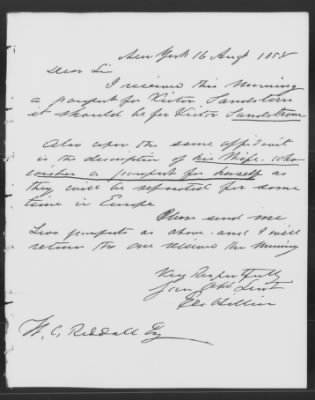 New York 16 Augt 1858
Dear Sir
I received this Morning
a passport for Victor Sandstorn
it should be for Victor Sandstrom
Also upon the same affidavit
is the description of his Wife. who
wishes a passport for herself as
they will be separated for some
time in Europe
Please send me
passport as above. and I will
return the one received this Morning
Very Respectfully
Your Obt Servt
W. C. Reddall Esq